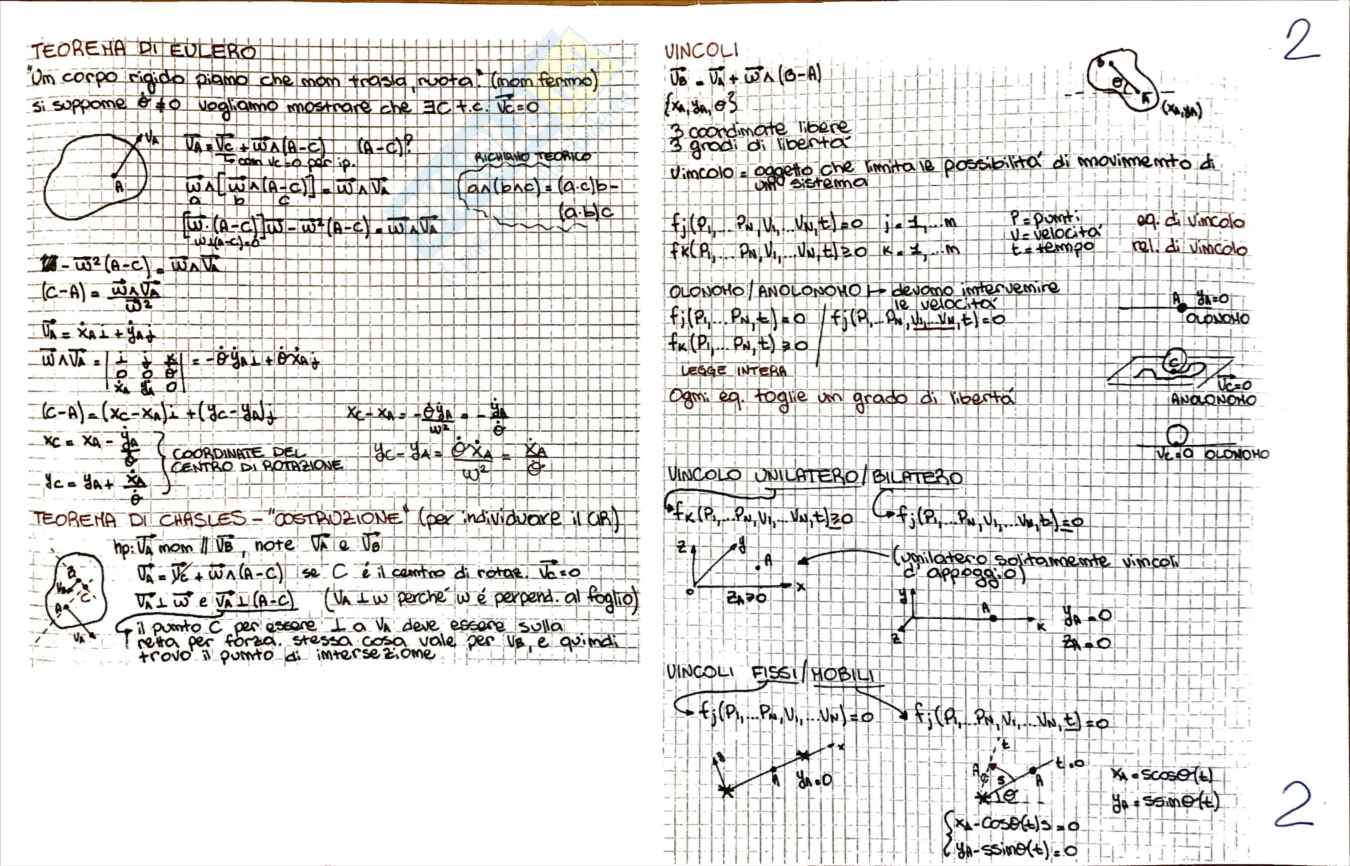 TEOREMA DI EULERO
"Un corpo rigido piano che non trasla, ruota." (non fermo)
si suppone θ̇≠0 vogliamo mostrare che ∃C t.c. V⃗c=0
VA
A
V⃗A = V⃗c + ω⃗∧(A-C) (A-C)?
↳ con vc=0 per ip.
RICHIAMO TEORICO
ω⃗∧[ω⃗∧(A-C)] = ω⃗∧V⃗A
a b c
a∧(b∧c) = (a·c)b-
(a·b)c
[ω⃗·(A-C)]ω⃗ - ω²(A-C) = ω⃗∧V⃗A
ω⊥(A-C)=0
-ω⃗²(A-C) = ω⃗∧V⃗A
(C-A) = ω⃗∧V⃗A / ω⃗²
V⃗A = ẋA i + ẏA j
ω⃗∧V⃗A = | i j k | = -θ̇ẏA i + θ̇ẋA j
0 0 θ̇
ẋA ẏA 0
(C-A) = (xC-xA)i + (yC-yA)j xC-xA = -θ̇ẏA/ω² = -ẏA/θ̇
xC = xA - ẏA/θ̇
COORDINATE DEL
CENTRO DI ROTAZIONE
yC-yA = θ̇ẋA/ω² = ẋA/θ̇
yC = yA + ẋA/θ̇
TEOREMA DI CHASLES - "COSTRUZIONE" (per individuare il CIR)
hp: V⃗A non // V⃗B, note V⃗A e V⃗B
V⃗A = V⃗c + ω⃗∧(A-C) se C é il centro di rotaz. V⃗c=0
V⃗A⊥ω⃗ e V⃗A⊥(A-C) (VA⊥ω perché ω é perpend. al foglio)
B
VB
C
A
VA
il punto C per essere ⊥ a VA deve essere sulla
retta per forza. stessa cosa vale per VB, e quindi
trovo il punto di intersezione
2
VINCOLI
V⃗B = V⃗A + ω⃗∧(B-A)
{xA, yA, θ}
B
θ
A
(xA,yA)
3 coordinate libere
3 gradi di libertá
Vincolo = oggetto che limita le possibilitá di movimento di
un sistema
fj(P1,...PN,V1,...VN,t)=0 j=1,...m P=punti eq. di vincolo
V=velocitá
fk(P1,...PN,V1,...VN,t)≥0 k=1,...m t=tempo rel. di vincolo
OLONOMO/ANOLONOMO ↦ devono intervenire
le velocitá
fj(P1,...PN,t)=0 / fj(P1,...PN,V1...VN,t)=0
fk(P1,...PN,t)≥0
A yA=0
OLONOMO
LEGGE INTERA
Ogni eq. toglie un grado di libertá
C
V⃗c=0
ANOLONOMO
Vc=0 OLONOMO
VINCOLO UNILATERO/BILATERO
fk(P1,...PN,V1,...VN,t)≥0 fj(P1,...PN,V1,...VN,t)=0
z
y
A
(unilatero solitamente vincoli
d'appoggio)
o
x
zA≥0
y
A
x
z
yA=0
zA=0
VINCOLI FISSI/MOBILI
fj(P1,...PN,V1,...VN)=0 fj(P1,...PN,V1,...VN,t)=0
x
A yA=0
t
A
s
t=0
A
θ
xA=scosθ(t)
yA=ssinθ(t)
xA-cosθ(t)s=0
yA-ssinθ(t)=0
2